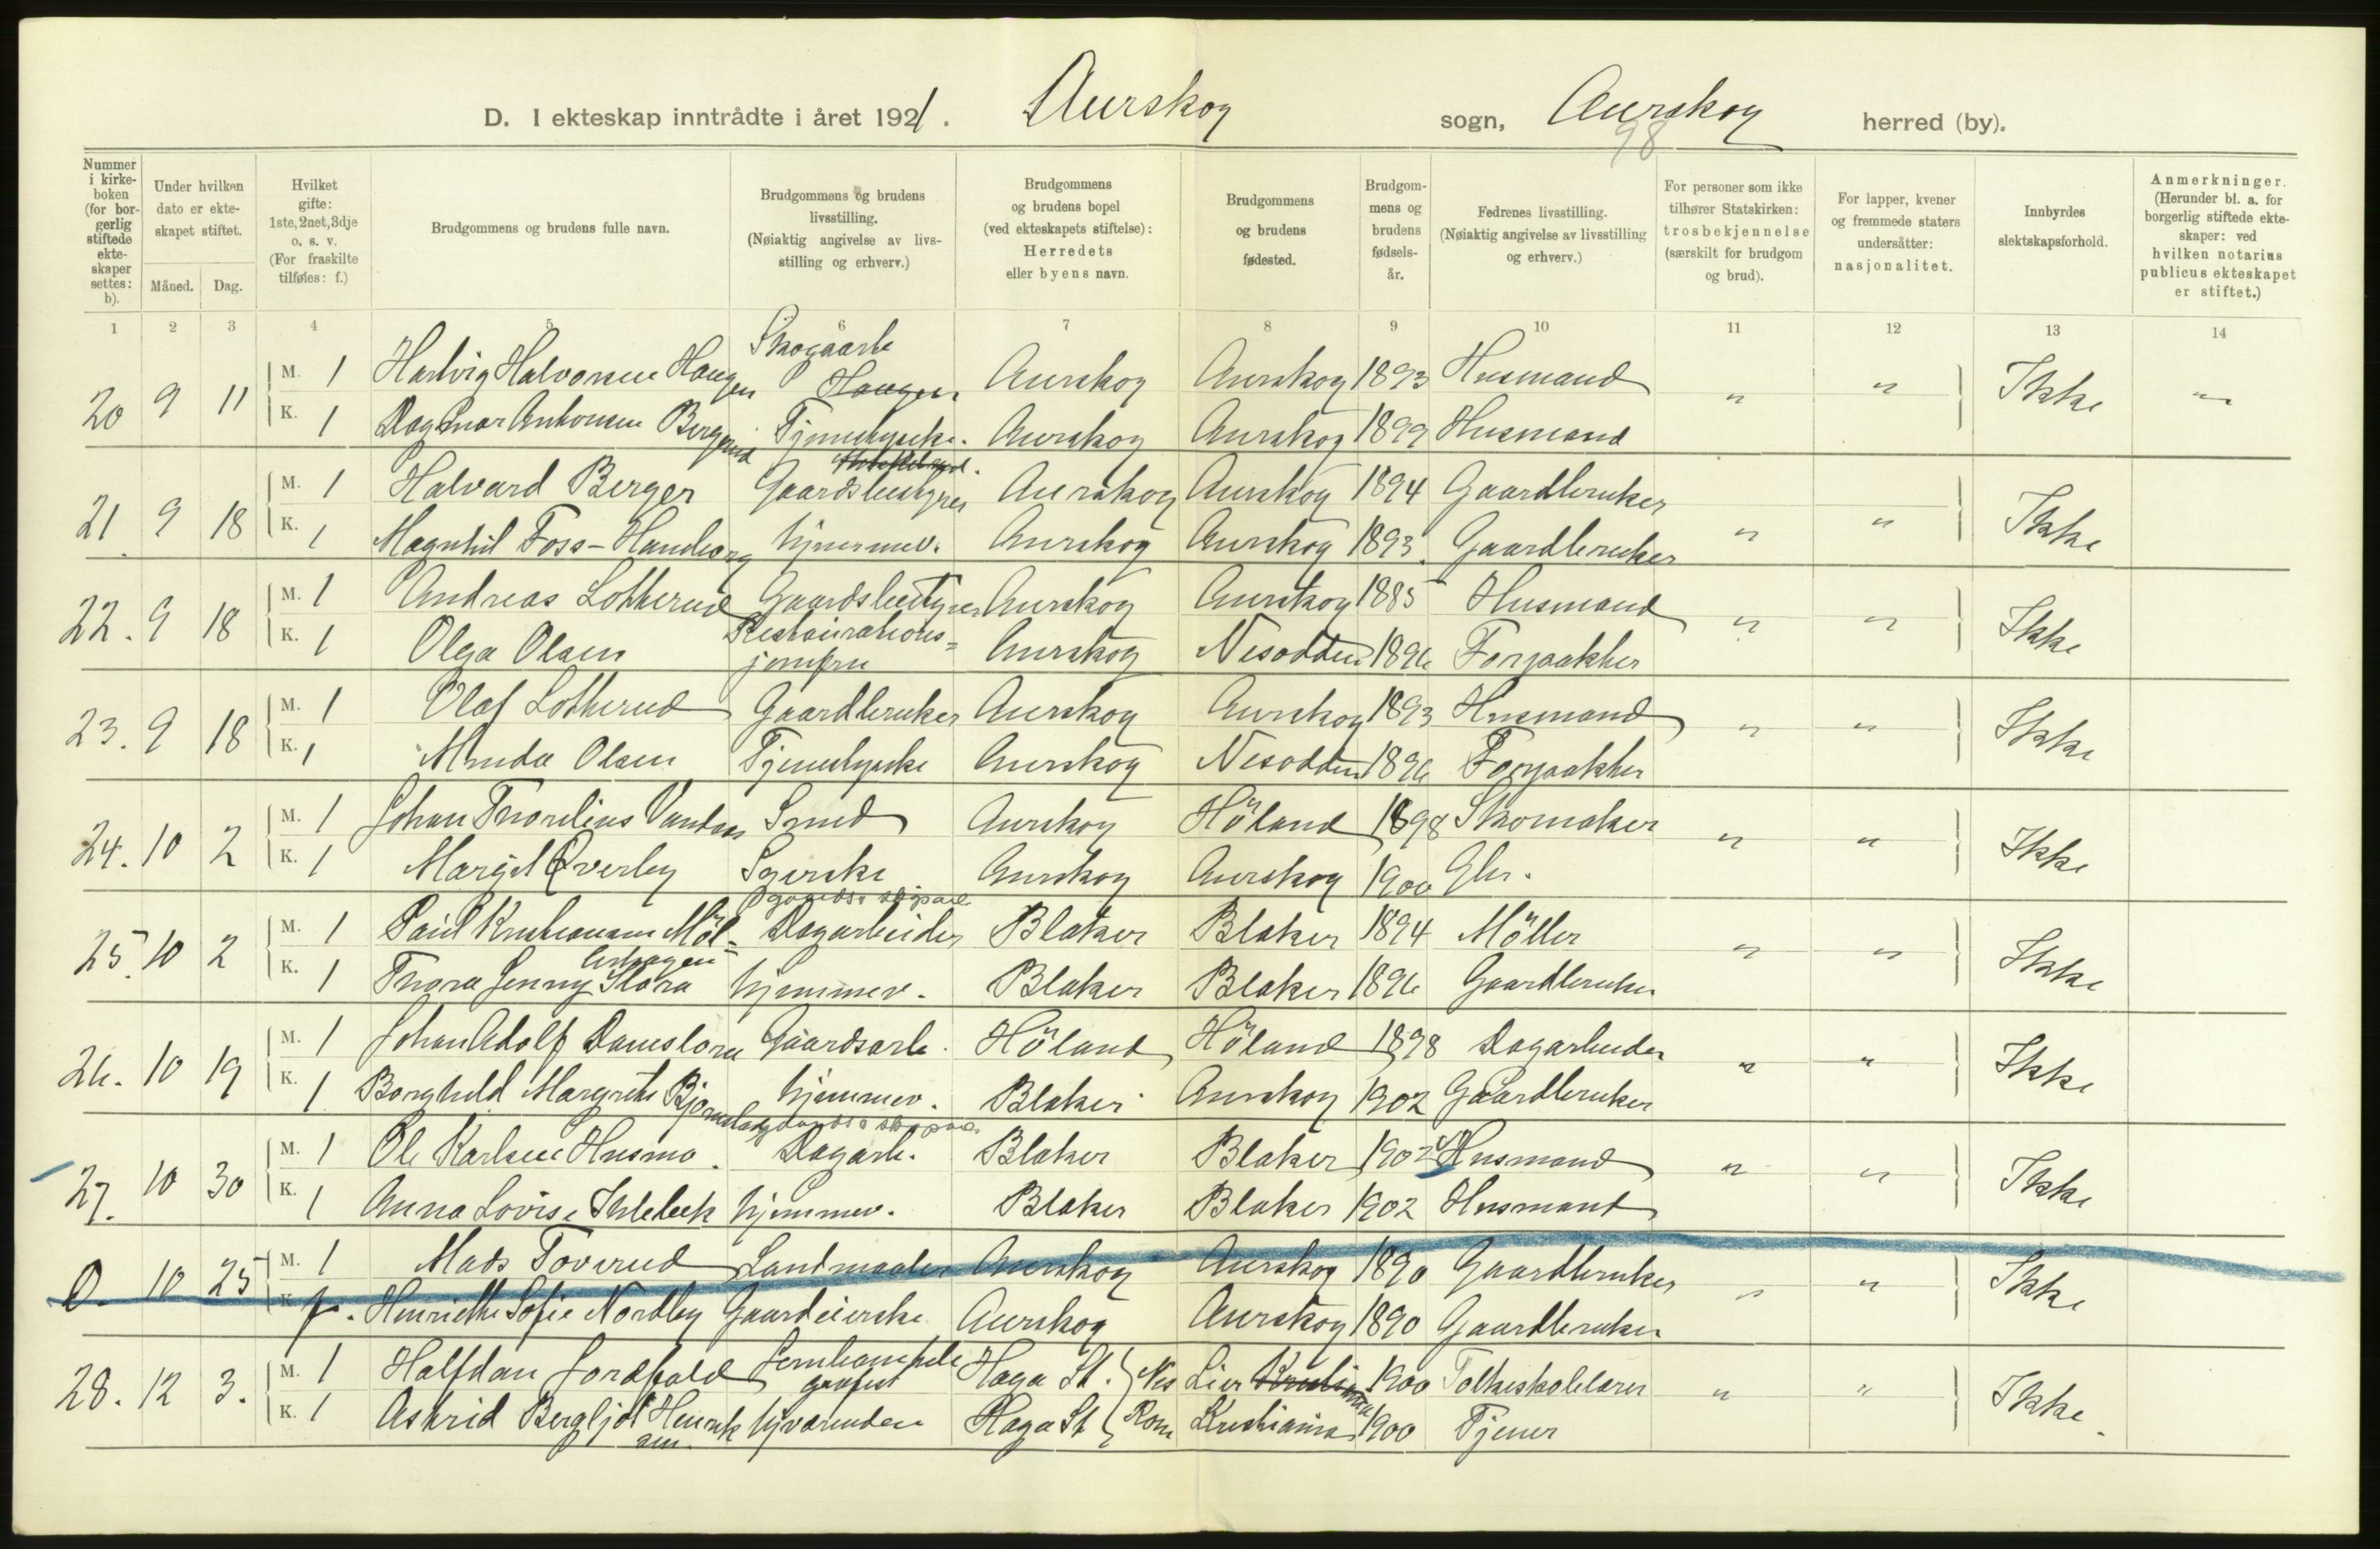 D. I ekteskap inntrådte i året 1921. Aurskog sogn, Aurskog herred (by).
98
Nummer i kirkeboken (for borgerlig stiftede ekteskaper settes: b).
Under hvilken dato er ekteskapet stiftet.
Måned. Dag.
Hvilket gifte: 1ste, 2net, 3dje o. s. v. (For fraskilte tilføies: f.)
Brudgommens og brudens fulle navn.
Brudgommens og brudens livsstilling. (Nøiaktig angivelse av livsstilling og erhverv.)
Brudgommens og brudens bopel (ved ekteskapets stiftelse): Herredets eller byens navn.
Brudgommens og brudens fødested.
Brudgommens og brudens fødselsår.
Fedrenes livsstilling. (Nøiaktig angivelse av livsstilling og erhverv.)
For personer som ikke tilhører Statskirken: trosbekjennelse (særskilt for brudgom og brud).
For lapper, kvener og fremmede staters undersåtter: nasjonalitet.
Innbyrdes slektskapsforhold.
Anmerkninger. (Herunder bl. a. for borgerlig stiftede ekteskaper: ved hvilken notarius publicus ekteskapet er stiftet.)
1 2 3 4 5 6 7 8 9 10 11 12 13 14
Skogaarb
20 9 11 M. 1 Hartvig Halvorsen Haugen Haugen Aurskog Aurskog 1893 Husmand " " Ikke "
K. 1 Dagmar Antonsen Bergerud Tjenestepike. Aurskog Aurskog 1899 Husmand
21. 9 18 M. 1 Halvard Berger Gaardsbestyrer Aurskog Aurskog 1894 Gaardbruker " " Ikke
K. 1 Magnhil Foss-Haneborg hjemmev. Aurskog Aurskog 1893. Gaardbruker
22. 9 18 M. 1 Andreas Lotterud Gaardsbestyrer Aurskog Aurskog 1885 Husmand " " Ikke
K. 1 Olga Olsen Restaurations=jomfru Aurskog Nesodden 1896 Forpakter
23. 9 18 M. 1 Olaf Lotterud Gaardbruker Aurskog Aurskog 1893 Husmand " " Ikke
K. 1 Minda Olsen Tjenestepike Aurskog Nesodden 1896 Forpakter
24. 10 2 M. 1 Johan Thorelius Vantaas Smed Aurskog Höland 1898 Skomaker " " Ikke
K. 1 Margit Överby Syerske Aurskog Aurskog 1900 Gbr.
gaards & skogsarb
25. 10 2 M. 1 Paul Kristiansen Möl- Dagarbeider Blaker Blaker 1894 Möller " " Ikke
lerhagen
K. 1 Thora Jenny Slora hjemmev. Blaker Blaker 1896 Gaardbruker
26. 10 19 M. 1 Johan Adolf Daneslora Gaardsarb. Höland Höland 1898 Dagarbeider " " Ikke
K. 1 Borghild Margrethe Bjørneland hjemmev. Blaker Aurskog 1902 Gaardbruker
gaards & skogsarb.
27. 10 30 M. 1 Ole Karlsen Husmo. Dagarb. Blaker Blaker 1902 Husmand " " Ikke
K. 1 Anna Lovise Ihlebek hjemmev. Blaker Blaker 1902 Husmand
0. 10 25 M. 1 Mads Toverud Landmaaler Aurskog Aurskog 1890 Gaardbruker " " Ikke
K. f. Henriette Sofie Nordby Gaardeierske Aurskog Aurskog 1890 Gaardbruker
28. 12 3. M. 1 Halfdan Jordfald Jernbanetelegrafist Haga St. Nes Lier 1900 Folkeskolelærer " " Ikke.
K. 1 Astrid Bergljot Henriksen hjværende Haga St Rom Kristiania 1900 Tjener